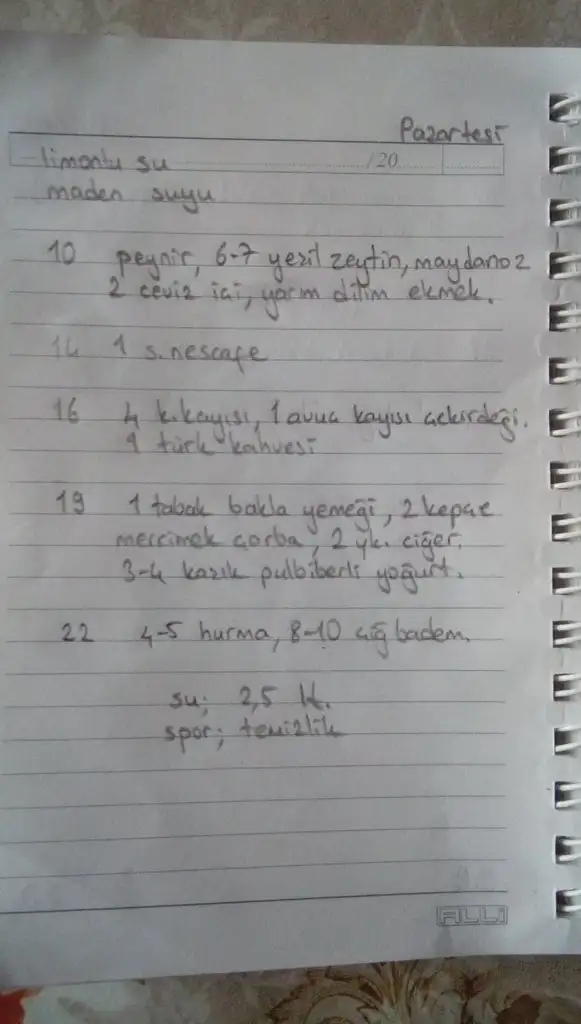 Pazartesi
limonlu su /20
maden suyu
10 peynir, 6-7 yeşil zeytin, maydanoz
2 ceviz içi, yarım dilim ekmek.
14 1 s. nescafe
16 4 k.kayısı, 1 avuç kayısı çekirdeği.
1 türk kahvesi
19 1 tabak bakla yemeği, 2 kepçe
mercimek çorba, 2 yk. ciğer.
3-4 kaşık pulbiberli yoğurt.
22 4-5 hurma, 8-10 çiğ badem.
su; 2,5 lt.
spor; temizlik
ALLI